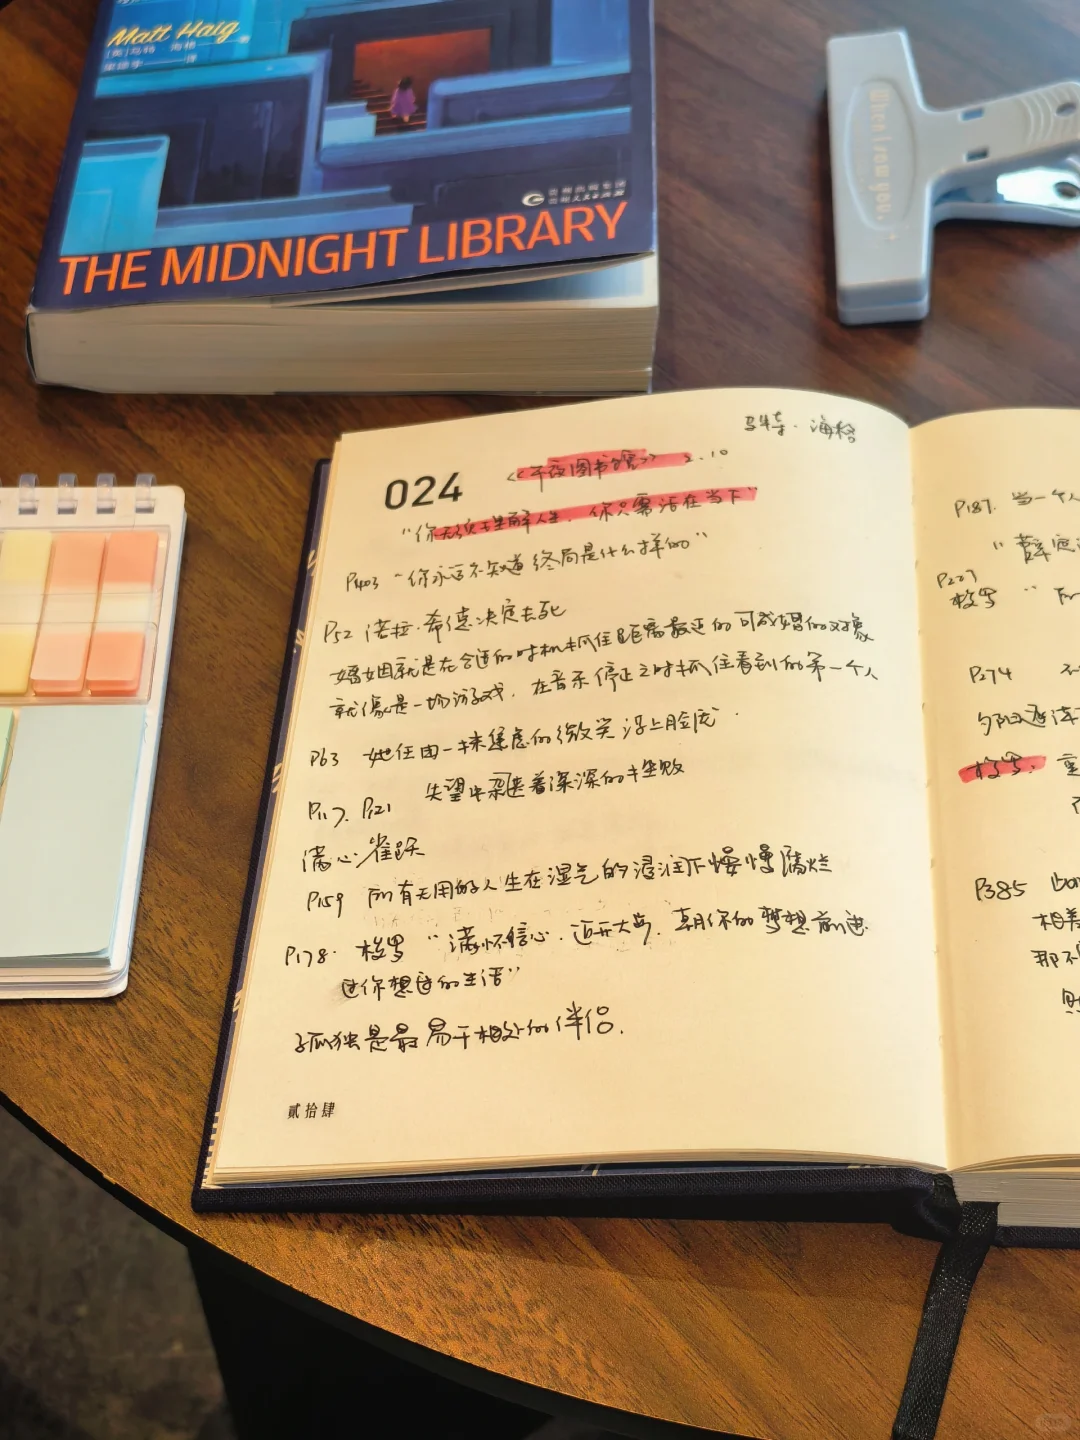 Matt Haig
[英]马特·海格 著
译
THE MIDNIGHT LIBRARY
When I saw you.
马特·海格
024 《午夜图书馆》 2.10
"你无须理解人生,你只需活在当下"
P403 "你永远不知道终局是什么样的"
P52 诺拉·希德决定去死
婚姻就是在合适的时机抓住距离最近的可成婚的对象
就像是一场游戏,在音乐停止之时抓住看到的第一个人
P63 她任由一抹焦虑的微笑浮上脸庞.
P117. P121 失望中混迷着深深的挫败
满心雀跃
P159 所有无用的人生在湿气的浸润下慢慢腐烂
P178. 梭罗 "满怀信心,迈开大步,朝你的梦想前进
过你想过的生活"
孤独是最易于相处的伴侣.
贰拾肆
P187. 当一个人
P227
梭罗 "
P274
梭罗:
P385
相差
那不